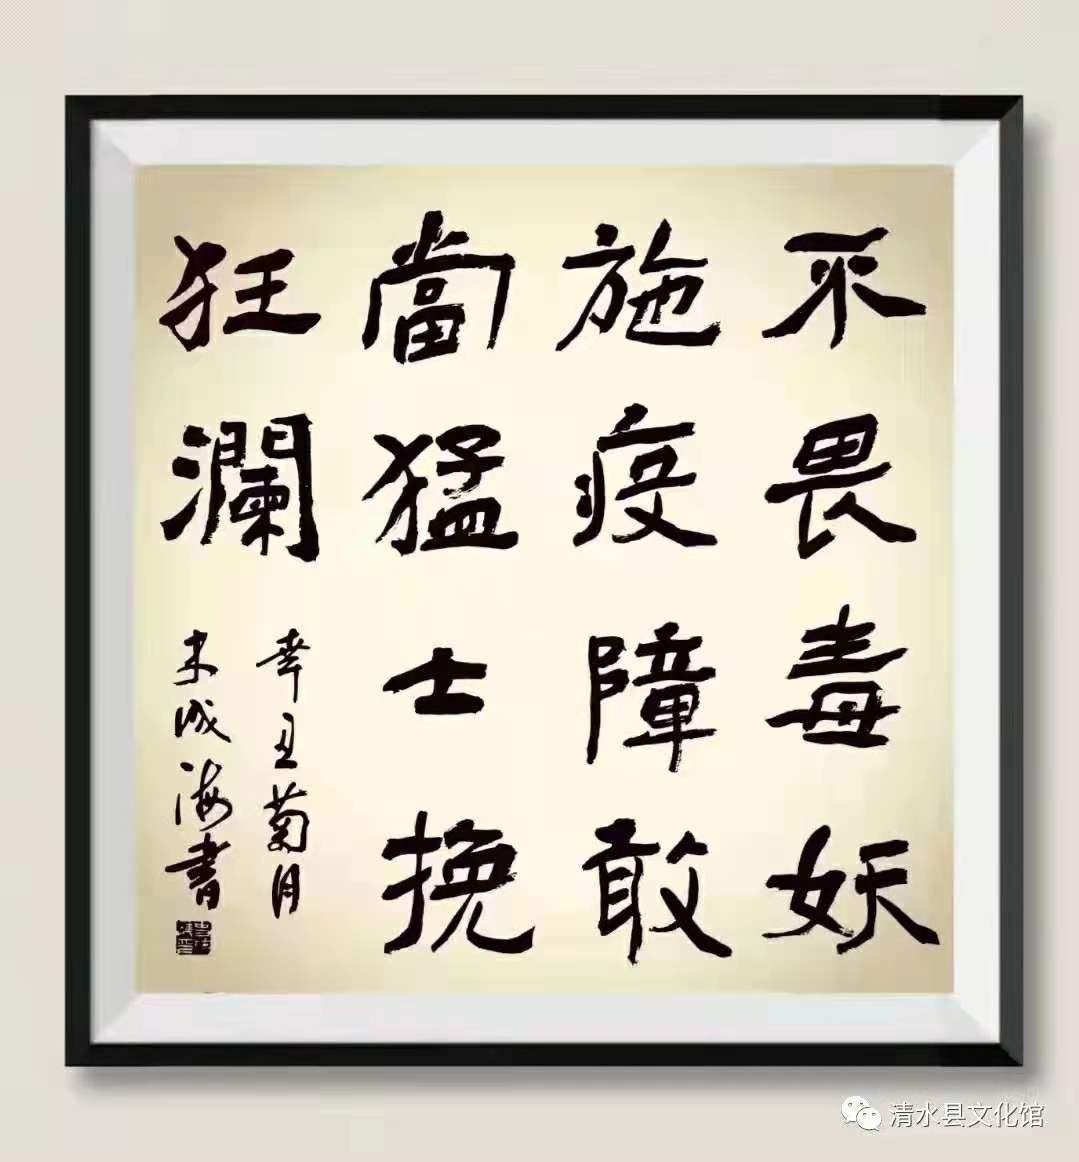 不畏毒妖
施疫障敢
當猛士挽
狂瀾
辛丑菊月
成海書
清水县文化馆